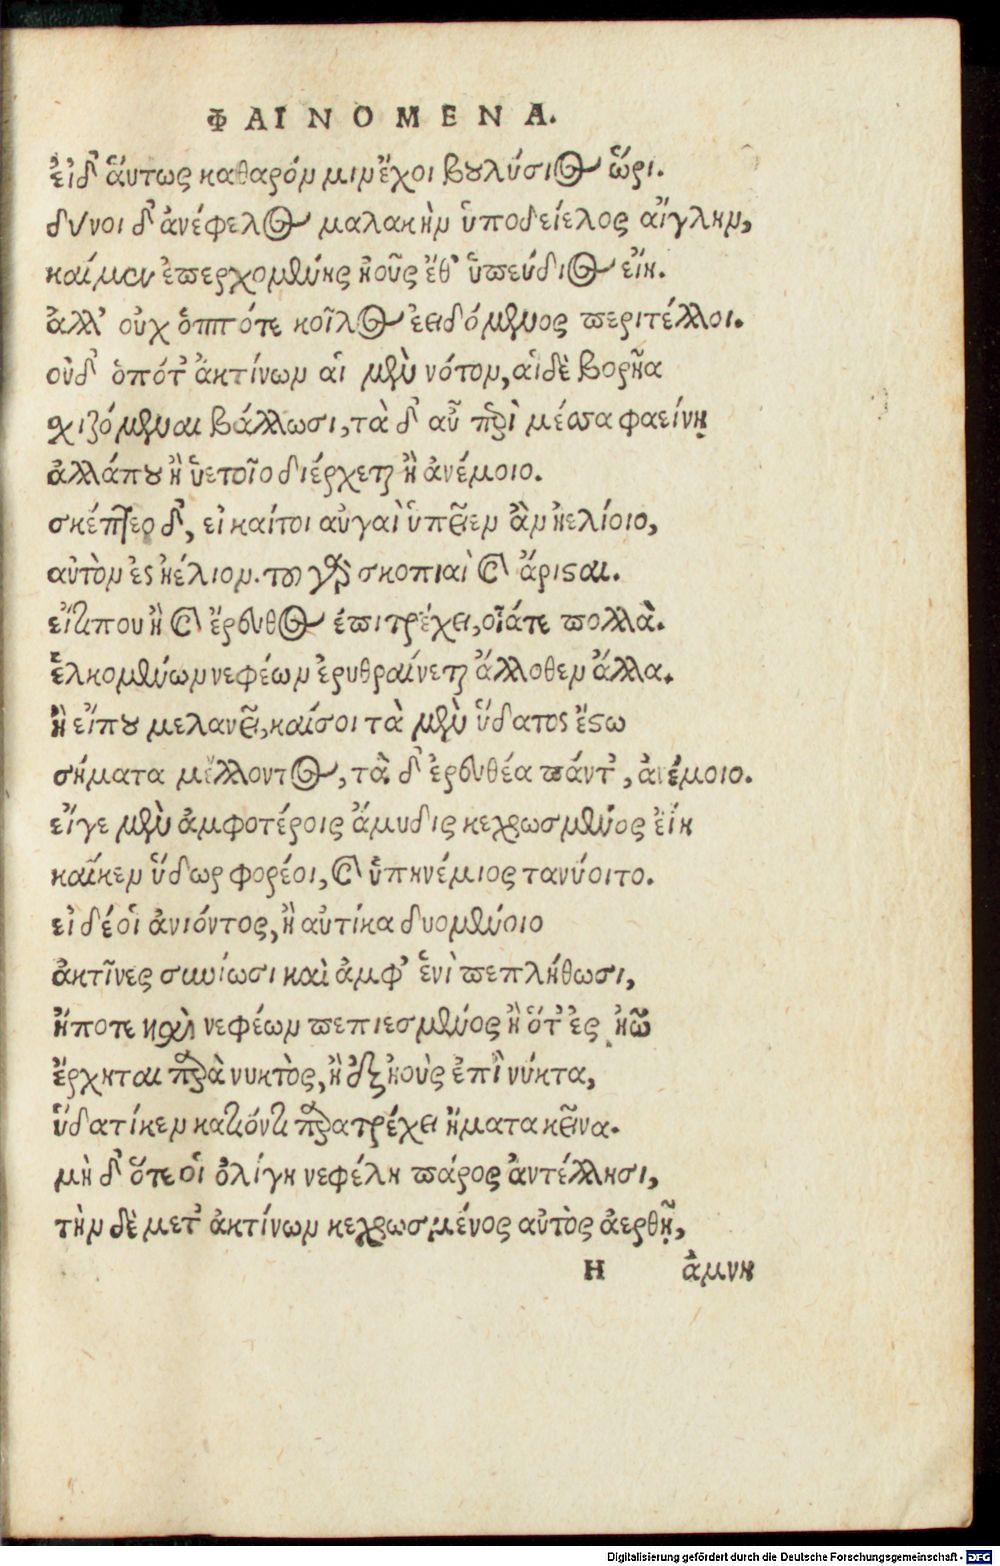 ΦΑΙΝΟΜΕΝΑ.
εἰδ' ἅυτως καθαρόν μιν ἔχοι βουλύσιος ὥρι.
δύνοι δ' ἀνέφελος μαλακὴν ὑποδείελος αἴγλην,
καί μεν ἐπερχομένης ἠοῦς ἔθ' ὑπεύδιος εἴη.
ἀλλ' οὐχ ὁππότε κοῖλος ἐειδόμενος περιτέλλοι.
οὐδ' ὁπότ' ἀκτίνων αἱ μὲν νότον, αἱ δὲ βορῆα
σχιζόμεναι βάλλωσι, τὰ δ' αὖ περὶ μέσσα φαείνῃ
ἀλλάπου ἢ ὑετοῖο διέρχεται ἢ ἀνέμοιο.
σκέπτεο δ', εἰ καίτοι αὐγαὶ ὑπεῖεν ἂν ἠελίοιο,
αὐτὸν ἐς ἠέλιον. του γὰρ σκοπιαὶ καὶ ἄρισται.
εἴτι που ἢ καὶ ἔρευθος ἐπιτρέχει, οἷάτε πολλὰ.
ἑλκομένων νεφέων ἐρυθραίνεται ἄλλοθεν ἄλλα.
ἢ εἴπου μελανεῖ, καίσοι τὰ μὲν ὕδατος ἔστω
σήματα μέλλοντος, τὰ δ' ἐρευθέα πάντ', ἀνέμοιο.
εἴγε μὲν ἀμφοτέροις ἄμυδις κεχρωσμένος εἴη
καἴκεν ὕδωρ φορέοι, καὶ ὑπηνέμιος τανύοιτο.
εἰ δέ οἱ ἀνιόντος, ἢ αὐτίκα δυομένοιο
ἀκτῖνες συνίωσι καὶ ἀμφ' ἑνὶ πεπλήθωσι,
ἤποτε καὶ νεφέων πεπιεσμένος ἢ ὅτ' ἐς ἠῶ
ἔρχηται παρὰ νυκτὸς, ἢ ἐξ ἠοὺς ἐπὶ νύκτα,
ὕδατί κεν κατιόντι παρατρέχει ἤματα κεῖνα.
μὴ δ' ὅτε οἱ ὀλίγη νεφέλη πάρος ἀντέλλησι,
τὴν δὲ μετ' ἀκτίνων κεχρωσμένος αὐτὸς ἀερθῇ,
H ἀμνη